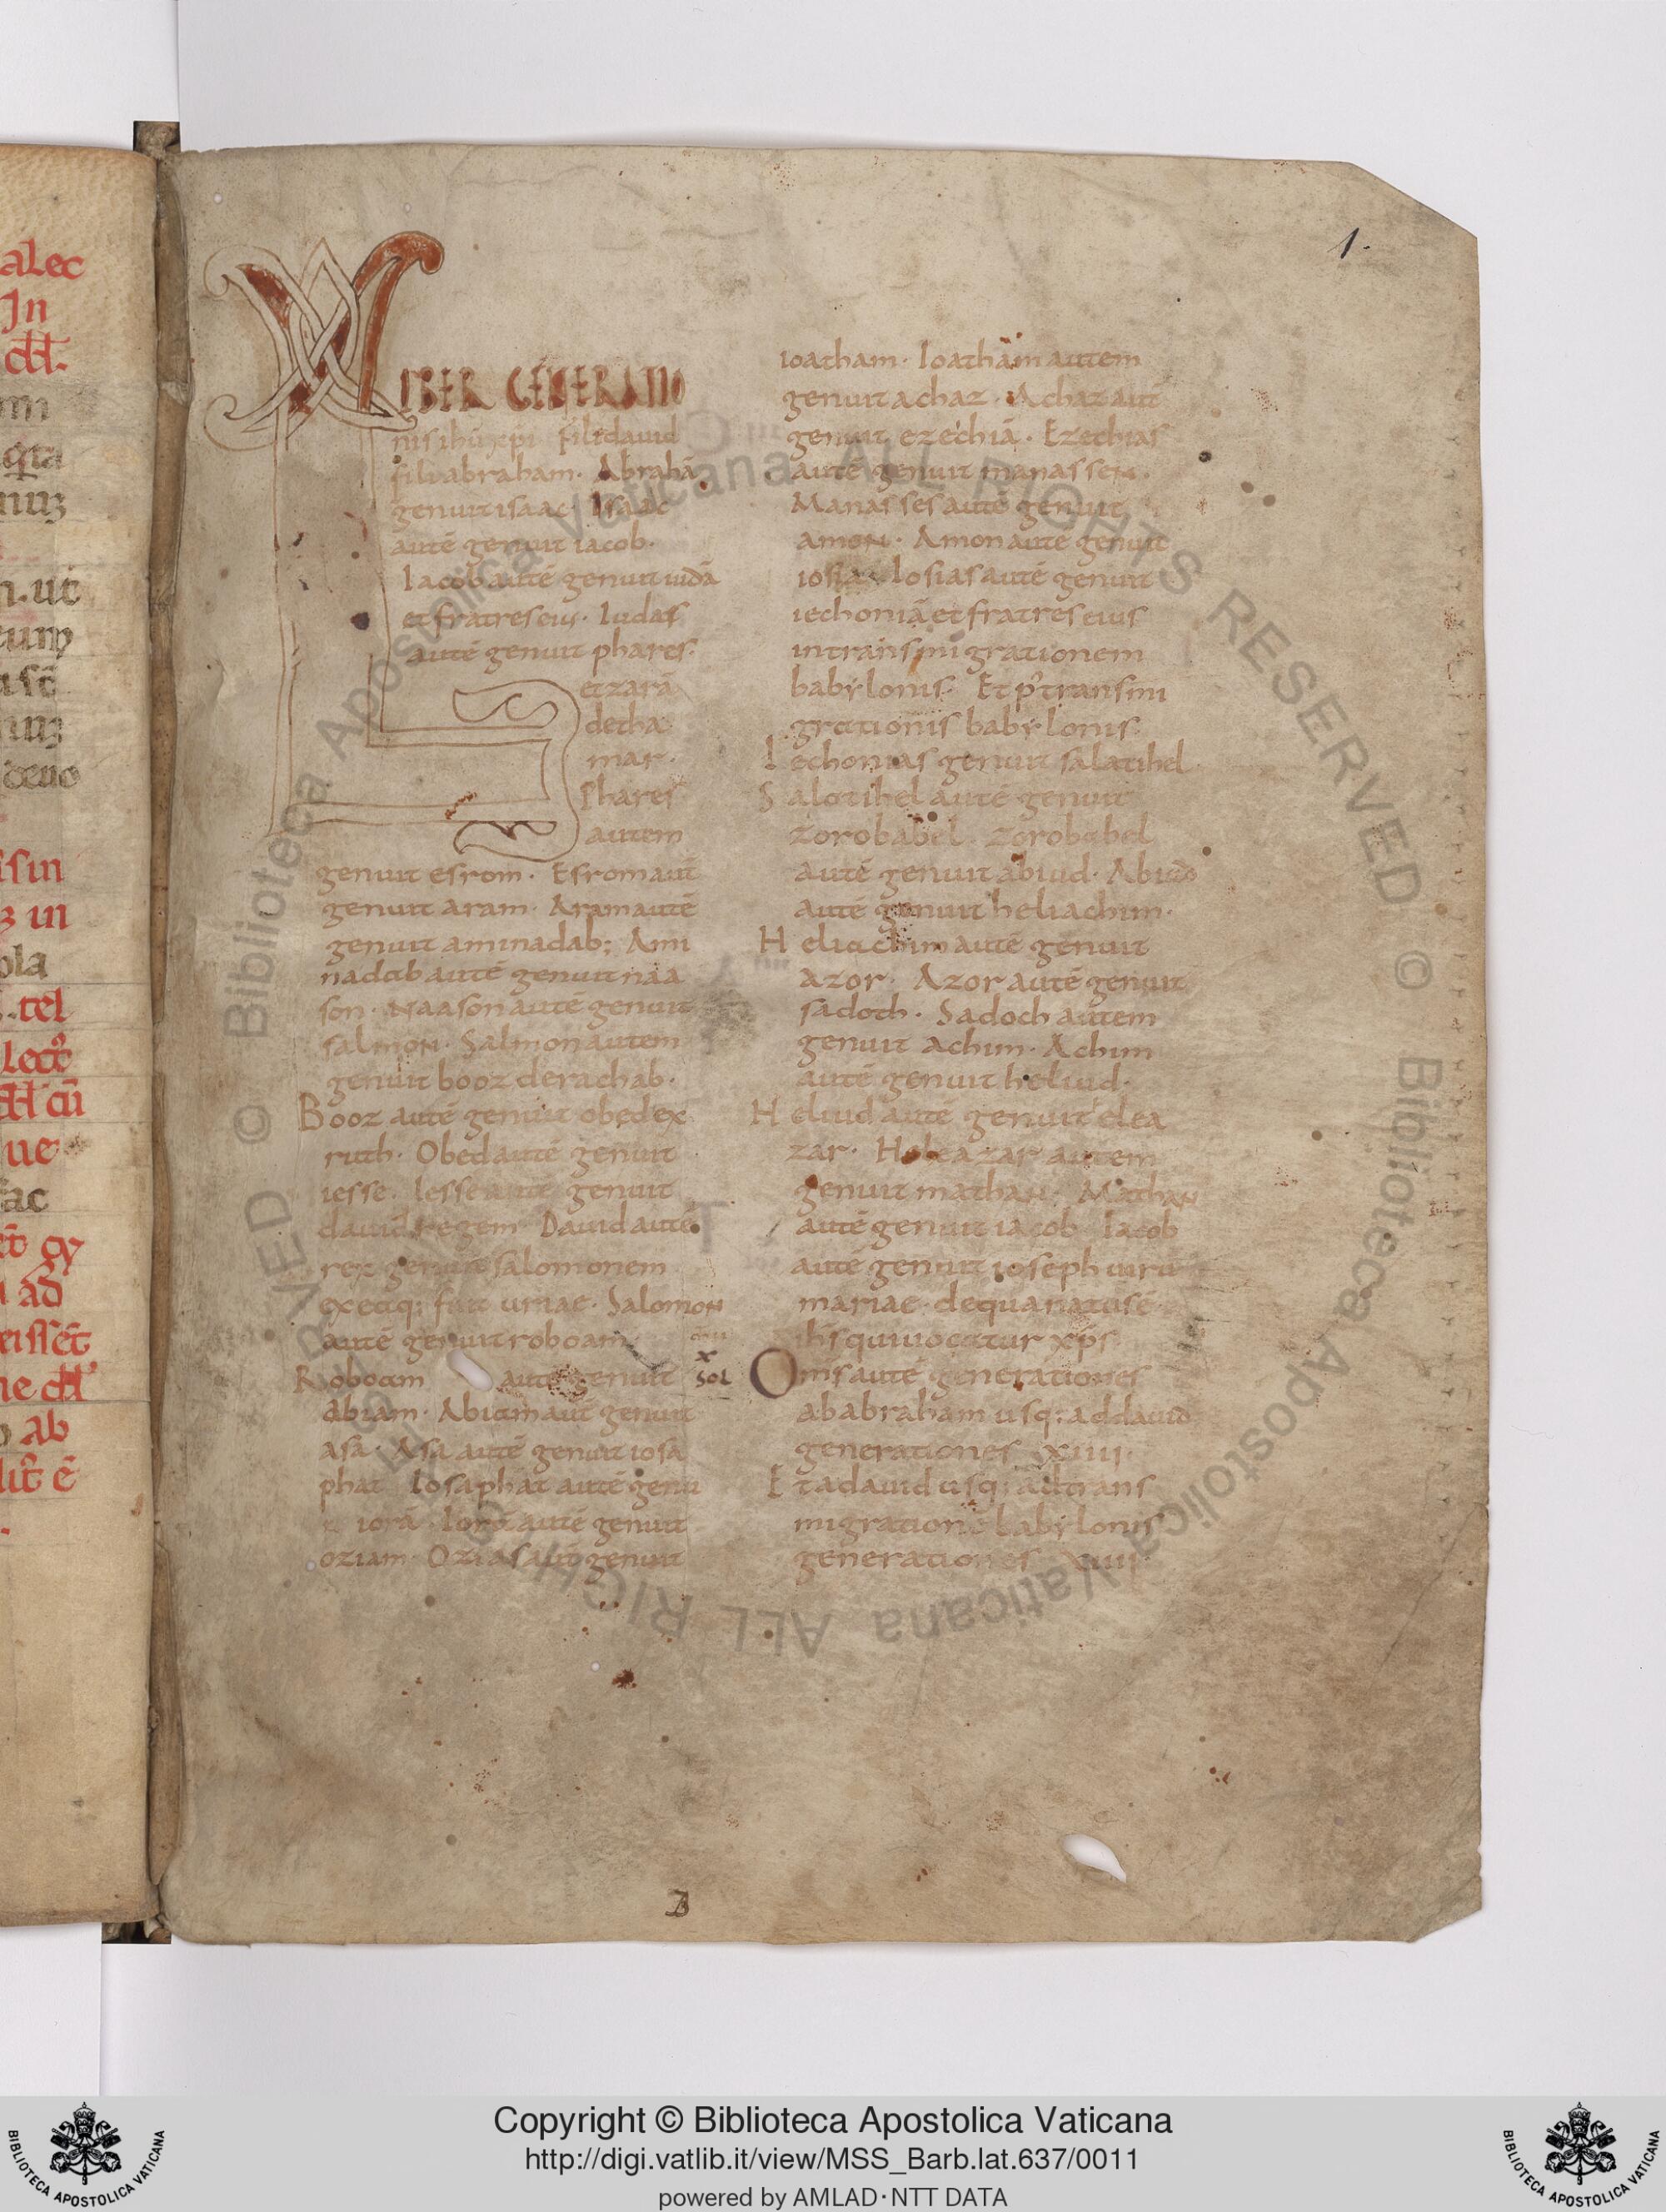 alec
In
cm
ut
isin
in
tel
cū
ue
ad
ab
ē
1.
LIBER GENERATIO
nis ihū xpi filii dauid
filii abraham. Abrahā
genuit isaac. Isaac
autē genuit iacob.
Iacob autē genuit iudā
et fratres eius. Iudas
autē genuit phares.
et zarā
de tha
mar.
Phares
autem
genuit esrom. Esrom aut̄
genuit aram. Aram autē
genuit aminadab; Ami
nadab autē genuit naa
son. Naason autē genuit
salmon. Salmon autem
genuit booz de rachab.
Booz autē genuit obed ex
ruth. Obed autē genuit
iesse. Iesse autē genuit
dauid regem. Dauid autē
rex genuit salomonem
ex ea q; fuit uriae. Salomon
autē genuit roboam.
Roboam autē genuit
abiam. Abiam aut̄ genuit
asa. Asa autē genuit iosa
phat. Iosaphat autē genu
iorā. Iorā autē genuit
oziam. Ozias aut̄ genuit
x
sol
ioatham. Ioatham autem
genuit achaz. Achaz aut̄
genuit ezechiā. Ezechias
autē genuit manassen.
Manasses autē genuit
amon. Amon autē genuit
iosia. Iosias autē genuit
iechoniā et fratres eius
in transmigrationem
babylonis. Et p' transmi
grationis babylonis.
Iechonias genuit salatihel.
Salatihel autē genuit
zorobabel. Zorobabel
autē genuit abiud. Abiud
autē genuit heliachim.
Heliachim autē genuit
azor. Azor autē genuit
sadoch. Sadoch autem
genuit achim. Achim
autē genuit heliud.
Heliud autē genuit elea
zar. Heleazar autem
genuit mathan; Mathan
autē genuit iacob. Iacob
autē genuit ioseph uirū
mariae. de qua natus ē
ihs qui uocatur xps.
Omīs autē generationes
ab abraham usq; ad dauid
generationes xiiii.
Et a dauid usq; ad trans
migrationē babylonis
generationes xiiii.
© Biblioteca Apostolica Vaticana ALL RIGHTS RESERVED
© Biblioteca Apostolica Vaticana ALL RIGHTS RESERVED
Copyright © Biblioteca Apostolica Vaticana
http://digi.vatlib.it/view/MSS_Barb.lat.637/0011
powered by AMLAD·NTT DATA
BIBLIOTECA APOSTOLICA VATICANA
BIBLIOTECA APOSTOLICA VATICANA